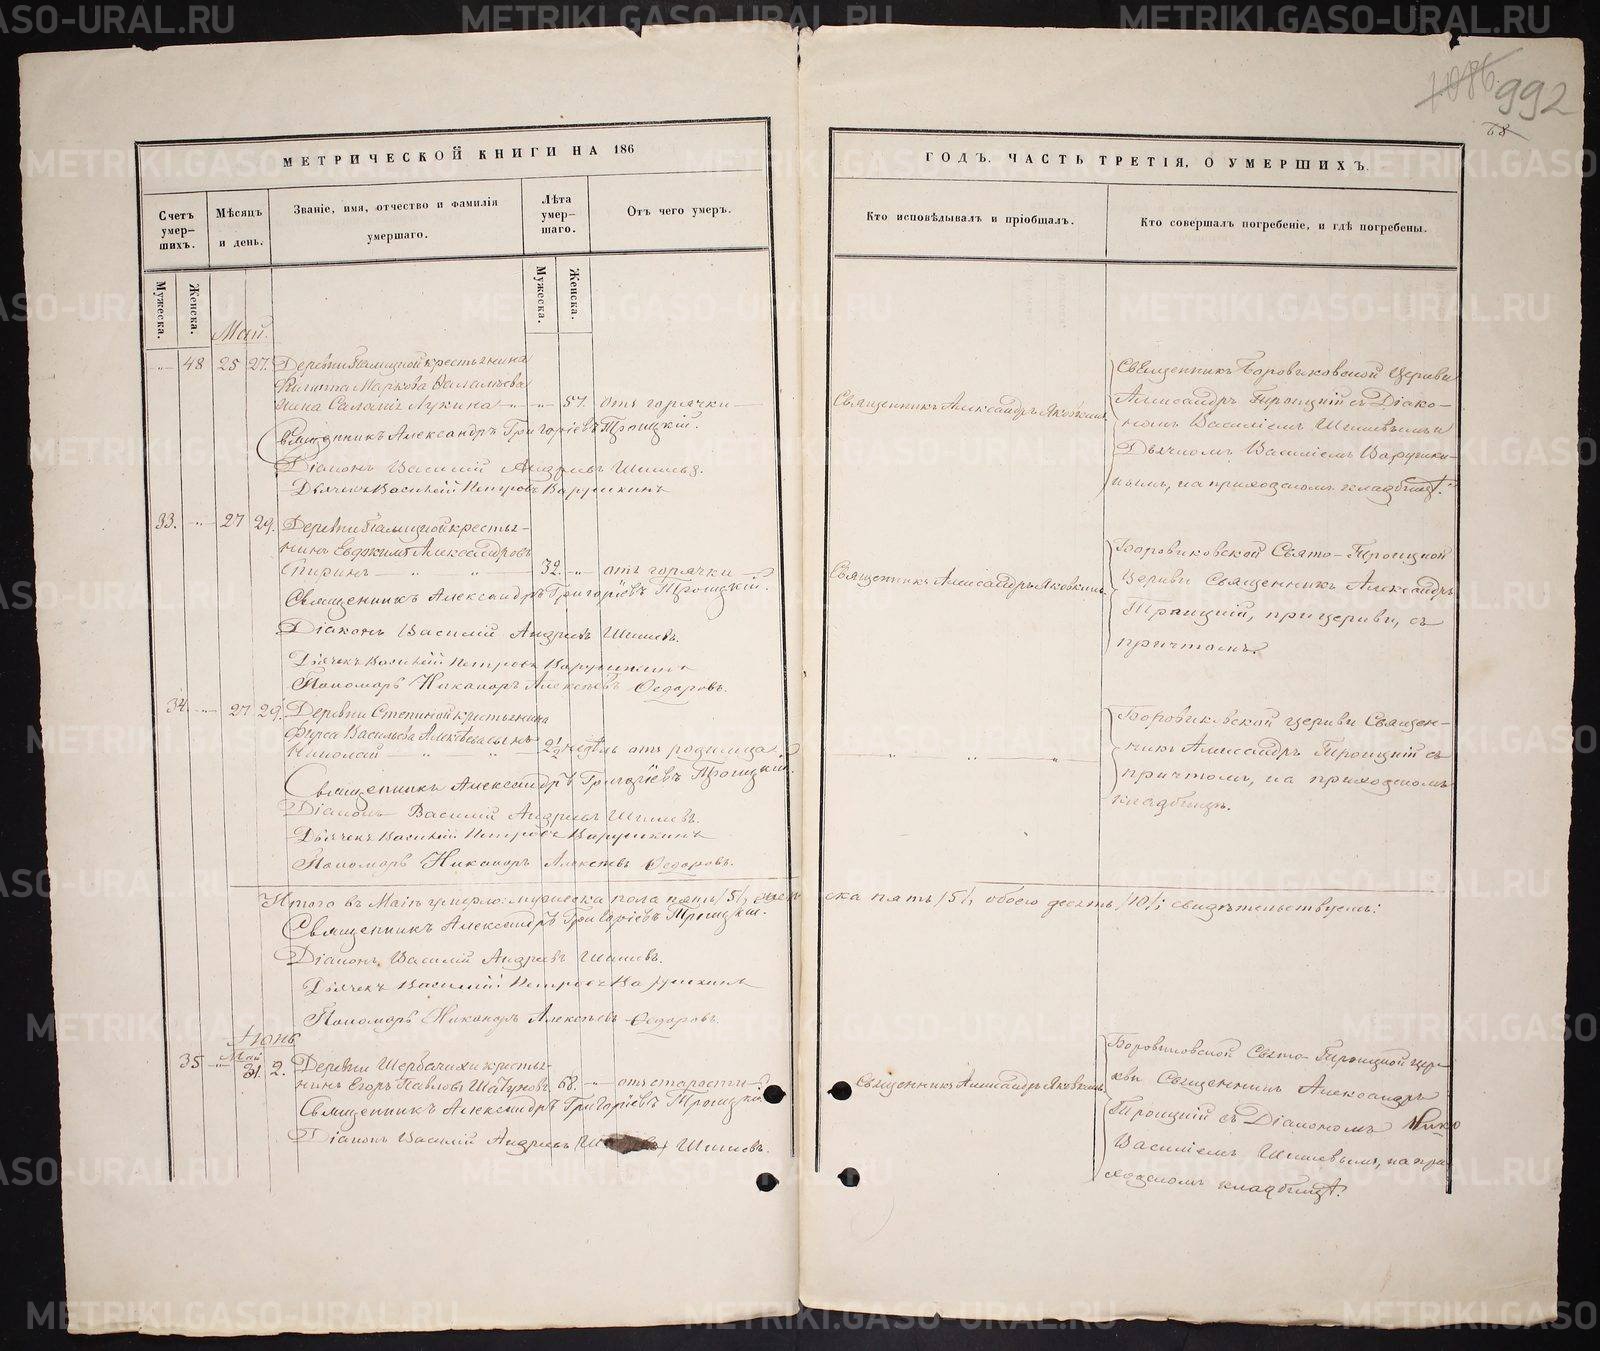 1086 992
МЕТРИЧЕСКОЙ КНИГИ НА 186
ГОДЪ. ЧАСТЬ ТРЕТІЯ, О УМЕРШИХЪ.
Счетъ умер-шихъ.
Мѣсяцъ и день.
Званіе, имя, отчество и фамилія умершаго.
Лѣта умер-шаго.
Отъ чего умеръ.
Кто исповѣдывалъ и пріобщалъ.
Кто совершалъ погребеніе, и гдѣ погребены.
Мужеска.
Женска.
Мужеска.
Женска.
Май.
48 25 27. Деревни Галицкой крестьянина
Филиппа Маркова
жена Саломія Лукина 57. отъ горячки
Священникъ Александръ Григоріевъ Троицкій.
Діаконъ Василій Андреевъ Шишевъ.
Дьячекъ Василій Петровъ Варушкинъ
Священникъ Александръ Яковкинъ.
Священникъ Боровиковской Церкви
Александръ Троицкій съ Діако-
номъ Василіемъ Шишевымъ и
Дьячкомъ Василіемъ Варушки-
нымъ, на приходскомъ кладбищѣ.
33. 27 29. Деревни Галицкой кресть-
янинъ Евфимъ Александровъ
Спиринъ 32. отъ горячки
Священникъ Александръ Григоріевъ Троицкій.
Діаконъ Василій Андреевъ Шишевъ.
Дьячекъ Василій Петровъ Варушкинъ
Пономарь Никаноръ Алексѣевъ Ѳедоровъ.
Священникъ Александръ Яковкинъ.
Боровиковской Свято-Троицкой
Церкви Священникъ Александръ
Троицкій, при церкви, съ
причтомъ.
34. 27 29. Деревни Степиной крестьянина
Фирса Васильева Алексѣева сынъ
Николай 2½ недѣль отъ родимца
Священникъ Александръ Григоріевъ Троицкій.
Діаконъ Василій Андреевъ Шишевъ.
Дьячекъ Василій Петровъ Варушкинъ
Пономарь Никаноръ Алексѣевъ Ѳедоровъ.
Боровиковской церкви Священ-
никъ Александръ Троицкій съ
причтомъ, на приходскомъ
кладбищѣ.
Итого въ Маѣ умерло: мужеска пола пять /5/, женска пять /5/, обоего десять /10/; свидѣтельствуемъ:
Священникъ Александръ Григоріевъ Троицкій.
Діаконъ Василій Андреевъ Шишевъ.
Дьячекъ Василій Петровъ Варушкинъ
Пономарь Никаноръ Алексѣевъ Ѳедоровъ.
Іюнь
Май
35 31. 2. Деревни Щербачихи кресть-
янинъ Егоръ Павловъ Шатуновъ 68. отъ старости
Священникъ Александръ Григоріевъ Троицкій.
Діаконъ Василій Андреевъ Шишевъ.
Священникъ Александръ Яковкинъ
Боровиковской Свято-Троицкой цер-
кви Священникъ Александръ
Троицкій съ Діакономъ
Василіемъ Шишевымъ, на при-
ходскомъ кладбищѣ.
METRIKI.GASO-URAL.RU